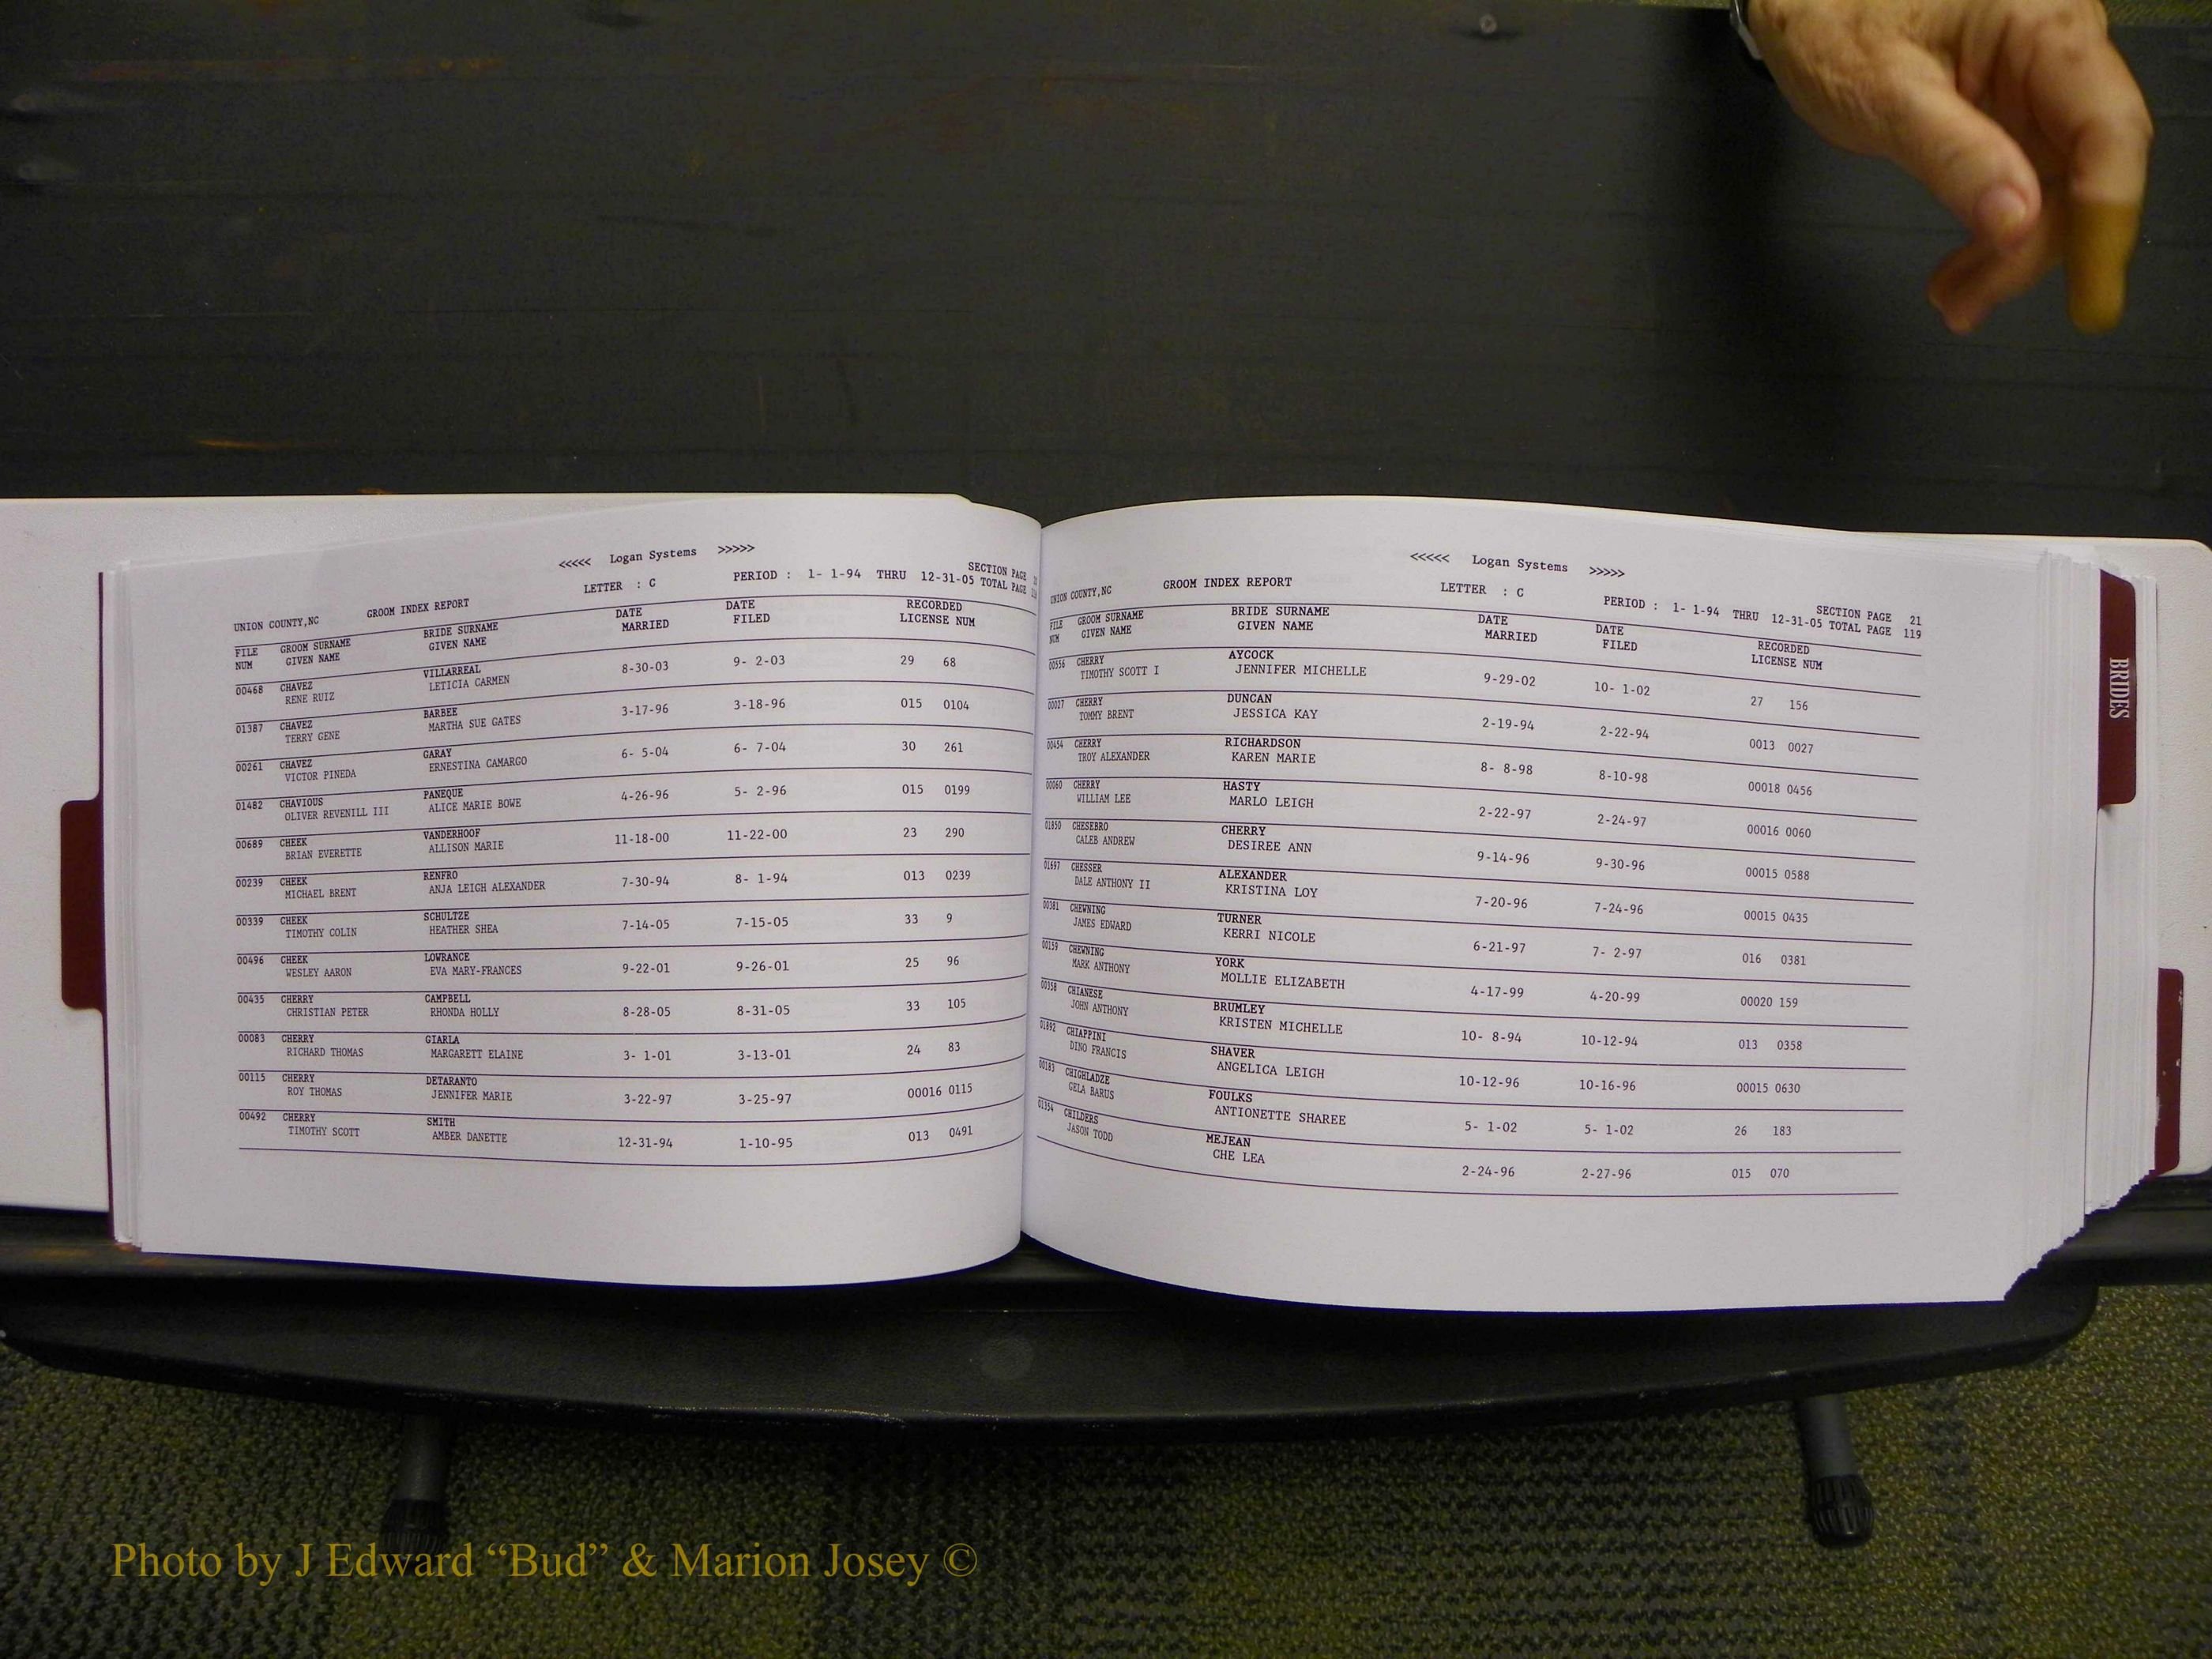 <<<<< Logan Systems >>>>>
SECTION PAGE
LETTER : C PERIOD : 1- 1-94 THRU 12-31-05 TOTAL PAGE
UNION COUNTY,NC GROOM INDEX REPORT
FILE GROOM SURNAME BRIDE SURNAME DATE DATE RECORDED
NUM GIVEN NAME GIVEN NAME MARRIED FILED LICENSE NUM
00468 CHAVEZ VILLARREAL 8-30-03 9- 2-03 29 68
RENE RUIZ LETICIA CARMEN
01387 CHAVEZ BARBEE 3-17-96 3-18-96 015 0104
TERRY GENE MARTHA SUE GATES
00261 CHAVEZ GARAY 6- 5-04 6- 7-04 30 261
VICTOR PINEDA ERNESTINA CAMARGO
01482 CHAVIOUS PANEQUE 4-26-96 5- 2-96 015 0199
OLIVER REVENILL III ALICE MARIE BOWE
00689 CHEEK VANDERHOOF 11-18-00 11-22-00 23 290
BRIAN EVERETTE ALLISON MARIE
00239 CHEEK RENFRO 7-30-94 8- 1-94 013 0239
MICHAEL BRENT ANJA LEIGH ALEXANDER
00339 CHEEK SCHULTZE 7-14-05 7-15-05 33 9
TIMOTHY COLIN HEATHER SHEA
00496 CHEEK LOWRANCE 9-22-01 9-26-01 25 96
WESLEY AARON EVA MARY-FRANCES
00435 CHERRY CAMPBELL 8-28-05 8-31-05 33 105
CHRISTIAN PETER RHONDA HOLLY
00083 CHERRY GIARLA 3- 1-01 3-13-01 24 83
RICHARD THOMAS MARGARETT ELAINE
00115 CHERRY DETARANTO 3-22-97 3-25-97 00016 0115
ROY THOMAS JENNIFER MARIE
00492 CHERRY SMITH 12-31-94 1-10-95 013 0491
TIMOTHY SCOTT AMBER DANETTE
<<<<< Logan Systems >>>>>
UNION COUNTY,NC GROOM INDEX REPORT LETTER : C SECTION PAGE 21
PERIOD : 1- 1-94 THRU 12-31-05 TOTAL PAGE 119
FILE GROOM SURNAME BRIDE SURNAME DATE DATE RECORDED
NUM GIVEN NAME GIVEN NAME MARRIED FILED LICENSE NUM
00556 CHERRY AYCOCK 9-29-02 10- 1-02 27 156
TIMOTHY SCOTT I JENNIFER MICHELLE
00027 CHERRY DUNCAN 2-19-94 2-22-94 0013 0027
TOMMY BRENT JESSICA KAY
00454 CHERRY RICHARDSON 8- 8-98 8-10-98 00018 0456
TROY ALEXANDER KAREN MARIE
00060 CHERRY HASTY 2-22-97 2-24-97 00016 0060
WILLIAM LEE MARLO LEIGH
01850 CHESEBRO CHERRY 9-14-96 9-30-96 00015 0588
CALEB ANDREW DESIREE ANN
01697 CHESSER ALEXANDER 7-20-96 7-24-96 00015 0435
DALE ANTHONY II KRISTINA LOY
00381 CHEWNING TURNER 6-21-97 7- 2-97 016 0381
JAMES EDWARD KERRI NICOLE
00159 CHEWNING YORK 4-17-99 4-20-99 00020 159
MARK ANTHONY MOLLIE ELIZABETH
00358 CHIANESE BRUMLEY 10- 8-94 10-12-94 013 0358
JOHN ANTHONY KRISTEN MICHELLE
01892 CHIAPPINI SHAVER 10-12-96 10-16-96 00015 0630
DINO FRANCIS ANGELICA LEIGH
00183 CHIGHLADZE FOULKS 5- 1-02 5- 1-02 26 183
GELA BARUS ANTIONETTE SHAREE
01354 CHILDERS MEJEAN 2-24-96 2-27-96 015 070
JASON TODD CHE LEA
BRIDES
Photo by J Edward “Bud” & Marion Josey ©